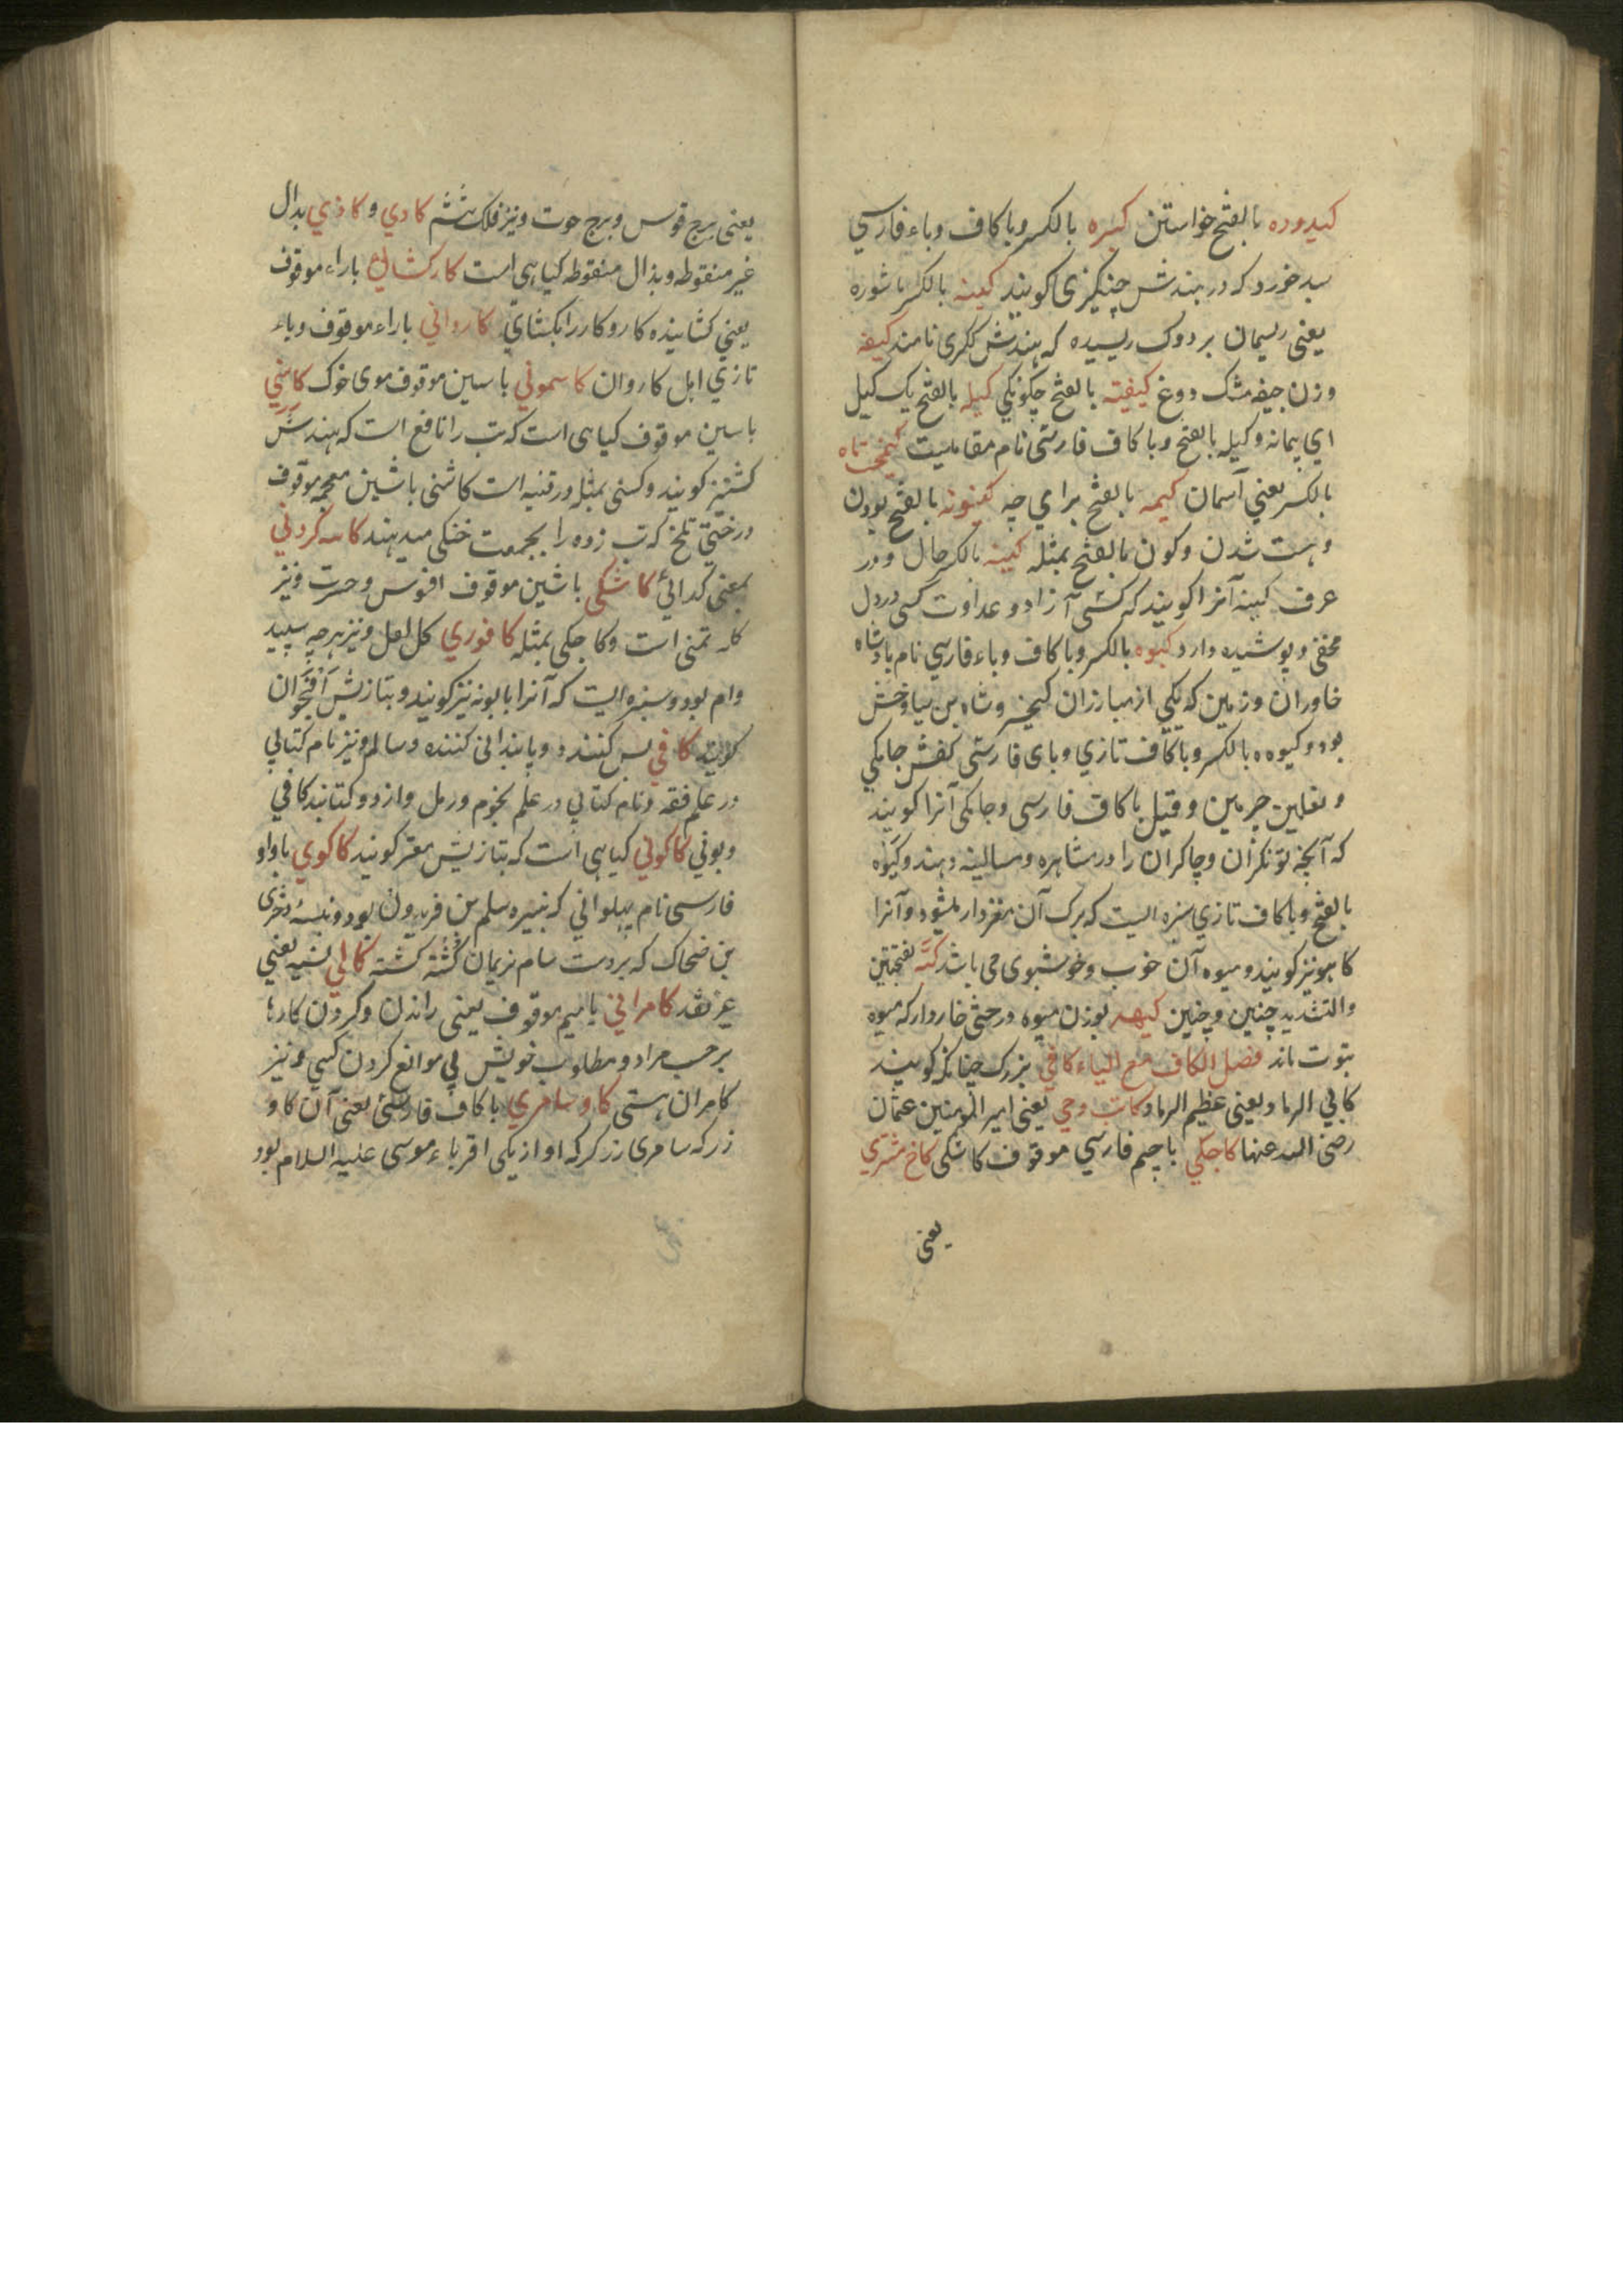 کیدوده بالفتح خواستن کیره بالکسر وبا کاف وباء فارسي
سبد خورد که در هندش چنکیزی کویند کینه بالکسر ماشوره
یعنی ریسمان بر دوک ریسیده که هندش ککری نامند کیفه
وزن جیفه مشک دوغ کیفیته بالفتح چکونکي کیله بالفتح یک کیل
اي پیمانه وکیله بالفتح وبا کاف فارسی نام مقامیست
بالکسر یعني آسمان کیمه بالفتح براي چه کینونه بالفتح بودن
وهست شدن وکون بالفتح بمثله کینه بالکسر حال ودر
عرف کینه آنرا کویند که کسی آزار و عداوت کسی در دل
مخفی و پوشیده دارد کیوه بالکسر وبا کاف وباء فارسي نام پادشاه
خاوران وزمین که یکي از مبارزان کیخسرو شاه بن سیاوخش
بود وکیوه بالکسر وبا کاف تازي وبای فارسی کفش جامکي
ونعلین چرمین وقیل با کاف فارسی وجامکی آنرا کویند
که آنچه نوکران وچاکران را در مشاهره وسالینه دهند وکیوه
بالفتح وبا کاف تازي سبزه ایست که برک آن مغزدار میشود وآنرا
کاهو نیز کویند ومیوه آن خوب وخوشبوی می باشد کیه بفتحتین
والتشدید چنین وچنین کیهه بوزن میوه درختی خاردار که میوه
بتوت ماند فصل الکاف مع الیاء کافي بزرک چنانکه کویند
کابي الرماد یعنی عظیم الرماد کاتب وحي یعنی امیر المومنین عثمان
رضی الله عنها کاجکي باجیم فارسي موقوف کاشکی کاخ مشتري
یعنی
یعنی برج قوس و برج حوت ونیز فلک ششم کادي و کاذي بدال
غیر منقوطه وبذال منقوطه کیاهی است کارکشاي باراء موقوف
یعني کشاینده کار وکار را بکشاي کارواني باراء موقوف وباء
تازي اهل کاروان کاسموني باسین موقوف موی خوک کاسني
باسین موقوف کیاهی است که تب را نافع است که هندش
کشنیز کویند وکسنی بمثله ورقنیه است کاشنی باشین معجمه موقوف
درختي تلخ که تب زده را بجهت خنکی میدهند کاسه کرداني
بمعنی کدائي کاشکی باشین موقوف افسوس وحسرت ونیز
کله تمنی است وکاجکی بمثله کافوري کل لعل ونیز هرچه سپید
وام بود وسبزه ایست که آنرا بابونه نیز کویند وبتازیش اقحوان
کویند کافي بس کننده و پایندانی کننده وسالم ونیز نام کتابي
در علم فقه ونام کتابي در علم نجوم ورمل وازدو کتابند کافي
وبوني کاکوني کیاهی است که بتازیش سعتر کویند کاکوي باواو
فارسی نام پهلواني که نبیره سلم بن فریدون بود ونبسهٔ دختری
بن ضحاک که بردست سام نریمان کشته کشته کالي نسیه یعني
غیر نقد کامراني بامیم موقوف یعنی راندن وکردن کارها
برحسب مراد و مطلوب خویش بي موانع کردن کسي ونیز
کامران هستی کاو سامري باکاف فارسی یعنی آن کاو
زر که سامری زرکر که او از یکی اقرباء موسی علیه السلام بود